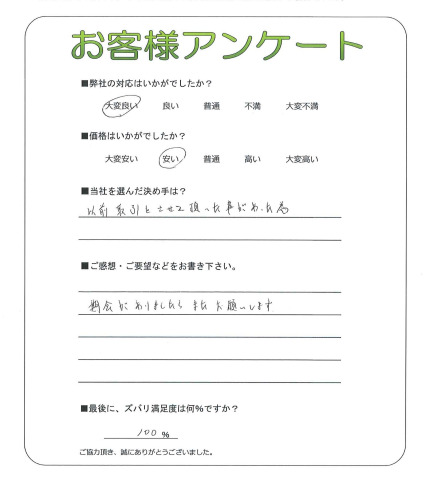 お客様アンケート
■弊社の対応はいかがでしたか?
大変良い 良い 普通 不満 大変不満
■価格はいかがでしたか?
大変安い 安い 普通 高い 大変高い
■当社を選んだ決め手は?
以前取引をさせて頂った事があった為
■ご感想・ご要望などをお書き下さい。
機会がありましたらまたお願いします
■最後に、ズバリ満足度は何%ですか?
100 %
ご協力頂き、誠にありがとうございました。